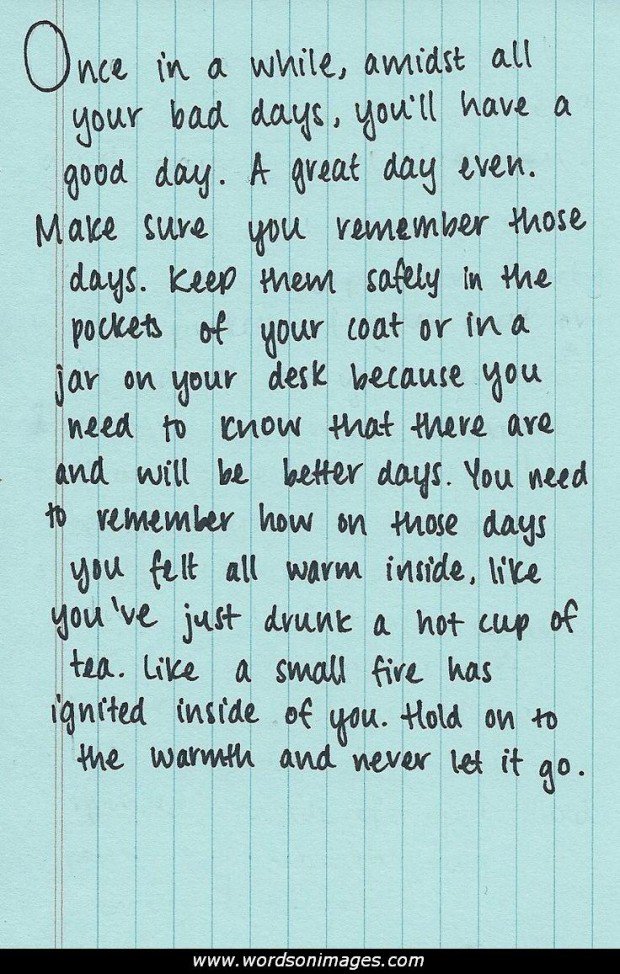 Once in a while, amidst all
your bad days, you'll have a
good day. A great day even.
Make sure you remember those
days. Keep them safely in the
pockets of your coat or in a
jar on your desk because you
need to know that there are
and will be better days. You need
to remember how on those days
you felt all warm inside, like
you've just drunk a hot cup of
tea. Like a small fire has
ignited inside of you. Hold on to
the warmth and never let it go.
www.wordsonimages.com